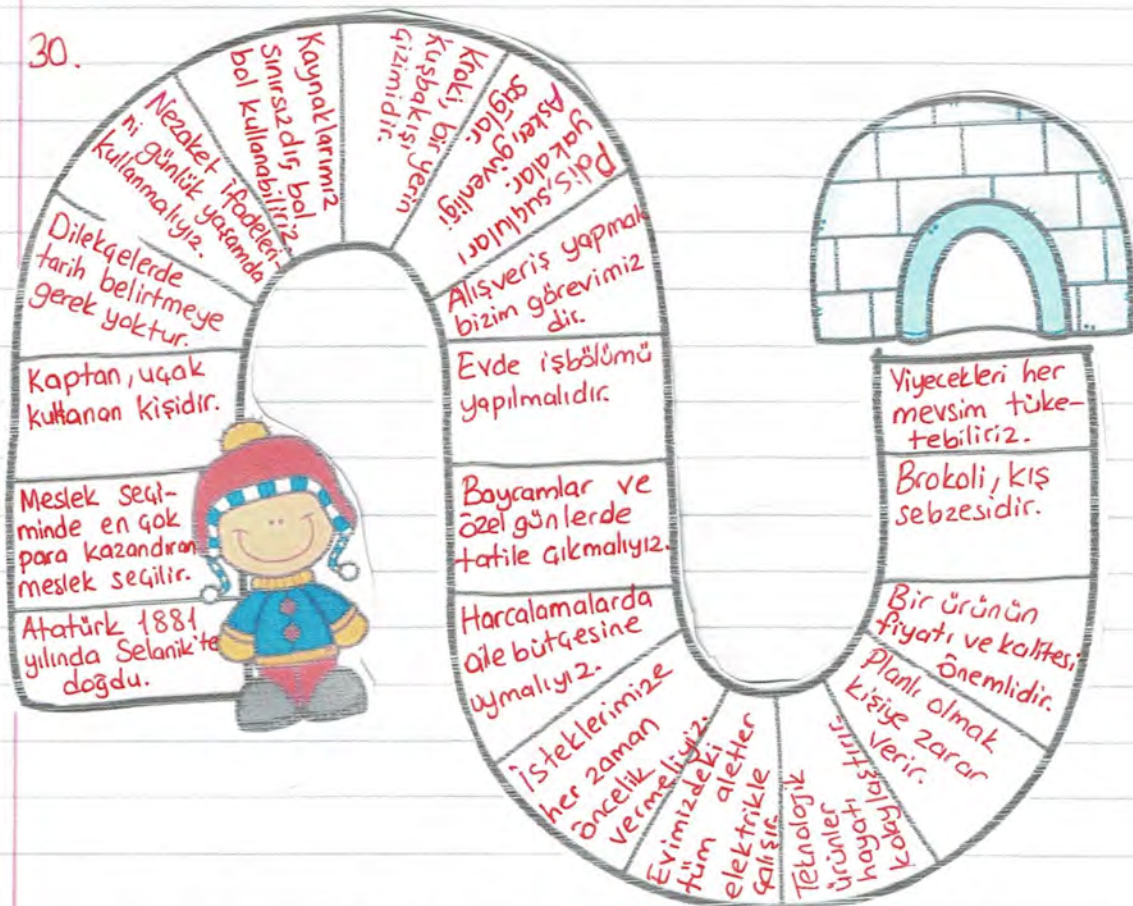 30.
Atatürk 1881
yılında Selanik'te
doğdu.
Meslek seçi-
minde en çok
para kazandıran
meslek seçilir.
Kaptan, uçak
kullanan kişidir.
Dilekçelerde
tarih belirtmeye
gerek yoktur.
Nezaket ifadeleri-
ni günlük yaşamda
kullanmalıyız.
Kaynaklarımız
sınırsızdır, bol
bol kullanabiliriz.
Kroki, bir yerin
kuşbakışı
çizimidir.
Polis, suçluları
yakalar.
Asker, güvenliği
sağlar.
Alışveriş yapmak
bizim görevimiz
dir.
Evde işbölümü
yapılmalıdır.
Bayramlar ve
özel günlerde
tatile çıkmalıyız.
Harcalamalarda
aile bütçesine
uymalıyız.
isteklerimize
her zaman
öncelik
vermeliyiz.
Evimizdeki
tüm aletler
elektrikle
çalışır.
Teknolojik
ürünler
hayatı
kolaylaştırır.
Planlı olmak
kişiye zarar
verir.
Bir ürünün
fiyatı ve kalitesi
önemlidir.
Brokoli, kış
sebzesidir.
Yiyecekleri her
mevsim tüke-
tebiliriz.